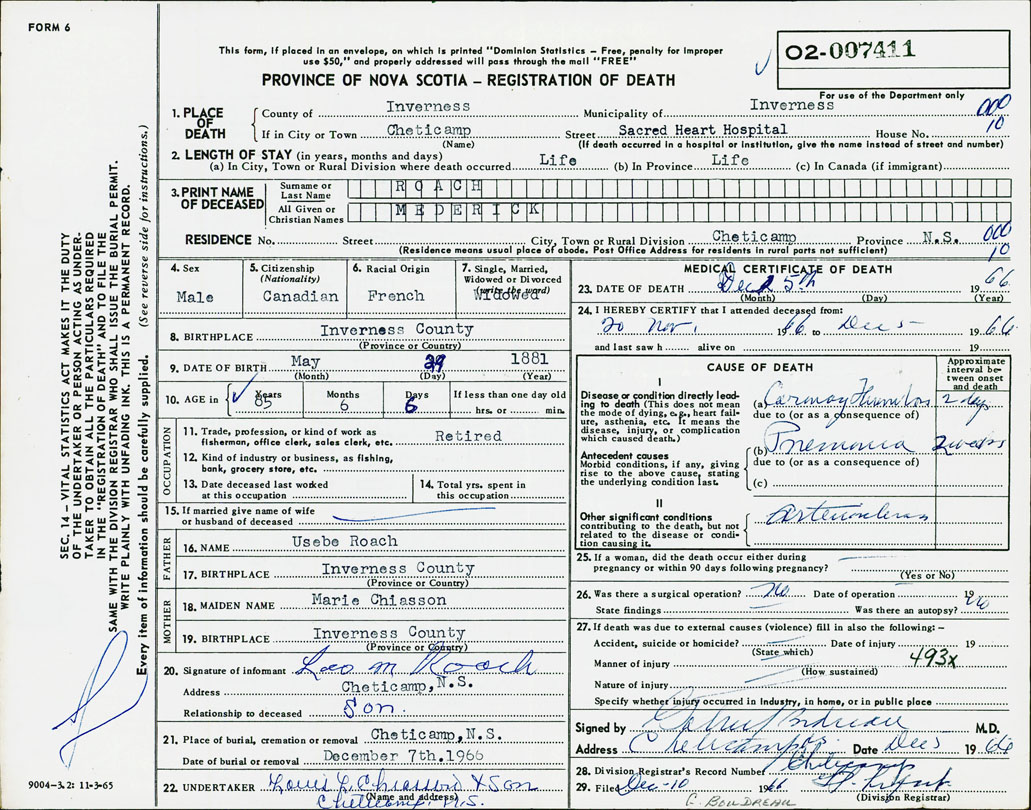 FORM 6
This form, if placed in an envelope, on which is printed "Dominion Statistics – Free, penalty for improper
use $50," and properly addressed will pass through the mail "FREE"
PROVINCE OF NOVA SCOTIA – REGISTRATION OF DEATH
02-007411
For use of the Department only
1. PLACE OF DEATH
County of Inverness Municipality of Inverness 000
If in City or Town Cheticamp Street Sacred Heart Hospital House No. 10
(Name) (If death occurred in a hospital or institution, give the name instead of street and number)
2. LENGTH OF STAY (in years, months and days)
(a) In City, Town or Rural Division where death occurred Life (b) In Province Life (c) In Canada (if immigrant)
3. PRINT NAME OF DECEASED
Surname or Last Name ROACH
All Given or Christian Names MEDERICK
RESIDENCE No. Street City, Town or Rural Division Cheticamp Province N.S. 000
(Residence means usual place of abode. Post Office Address for residents in rural parts not sufficient) 10
4. Sex
Male
5. Citizenship
(Nationality)
Canadian
6. Racial Origin
French
7. Single, Married,
Widowed or Divorced
(write the word)
Widowed
8. BIRTHPLACE Inverness County
(Province or Country)
9. DATE OF BIRTH May 29 1881
(Month) (Day) (Year)
10. AGE in Years 85 Months 6 Days 6 If less than one day old
hrs. or min.
OCCUPATION
11. Trade, profession, or kind of work as Retired
fisherman, office clerk, sales clerk, etc.
12. Kind of industry or business, as fishing,
bank, grocery store, etc.
13. Date deceased last worked
at this occupation
14. Total yrs. spent in
this occupation
15. If married give name of wife
or husband of deceased
FATHER
16. NAME Usebe Roach
17. BIRTHPLACE Inverness County
(Province or Country)
MOTHER
18. MAIDEN NAME Marie Chiasson
19. BIRTHPLACE Inverness County
(Province or Country)
20. Signature of informant Leo M Roach
Address Cheticamp, N.S.
Relationship to deceased Son.
21. Place of burial, cremation or removal Cheticamp, N.S.
Date of burial or removal December 7th. 1966
22. UNDERTAKER Louis L. Chiasson & Son
(Name and address)
Cheticamp, N.S.
MEDICAL CERTIFICATE OF DEATH
23. DATE OF DEATH Dec 5th 1966
(Month) (Day) (Year)
24. I HEREBY CERTIFY that I attended deceased from:
20 Nov. 1966 to Dec 5 1966
and last saw h alive on 19
CAUSE OF DEATH
Approximate interval between onset and death
I
Disease or condition directly leading to death (This does not mean the mode of dying, e.g., heart failure, asthenia, etc. It means the disease, injury, or complication which caused death.)
(a) 2 days
due to (or as a consequence of)
Antecedent causes
Morbid conditions, if any, giving rise to the above cause, stating the underlying condition last.
(b) Pnemonia 2 weeks
due to (or as a consequence of)
(c)
II
Other significant conditions
contributing to the death, but not related to the disease or condition causing it.
25. If a woman, did the death occur either during
pregnancy or within 90 days following pregnancy?
(Yes or No)
26. Was there a surgical operation? No Date of operation 19
State findings Was there an autopsy? No
27. If death was due to external causes (violence) fill in also the following: –
Accident, suicide or homicide? Date of injury 19
(State which)
Manner of injury 493x
(How sustained)
Nature of injury
Specify whether injury occurred in Industry, in home, or in public place
Signed by Boudreau M.D.
Address Cheticamp Date Dec 5 1966
28. Division Registrar's Record Number Cheticamp
29. Filed Dec-10 1966
(Division Registrar)
C. BOUDREAU
SEC. 14 – VITAL STATISTICS ACT MAKES IT THE DUTY
OF THE UNDERTAKER OR PERSON ACTING AS UNDER-
TAKER TO OBTAIN ALL THE PARTICULARS REQUIRED
IN THE "REGISTRATION OF DEATH" AND TO FILE THE
SAME WITH THE DIVISION REGISTRAR WHO SHALL ISSUE THE BURIAL PERMIT.
WRITE PLAINLY WITH UNFADING INK. THIS IS A PERMANENT RECORD.
Every item of information should be carefully supplied. (See reverse side for instructions.)
9004-3.2: 11-3-65